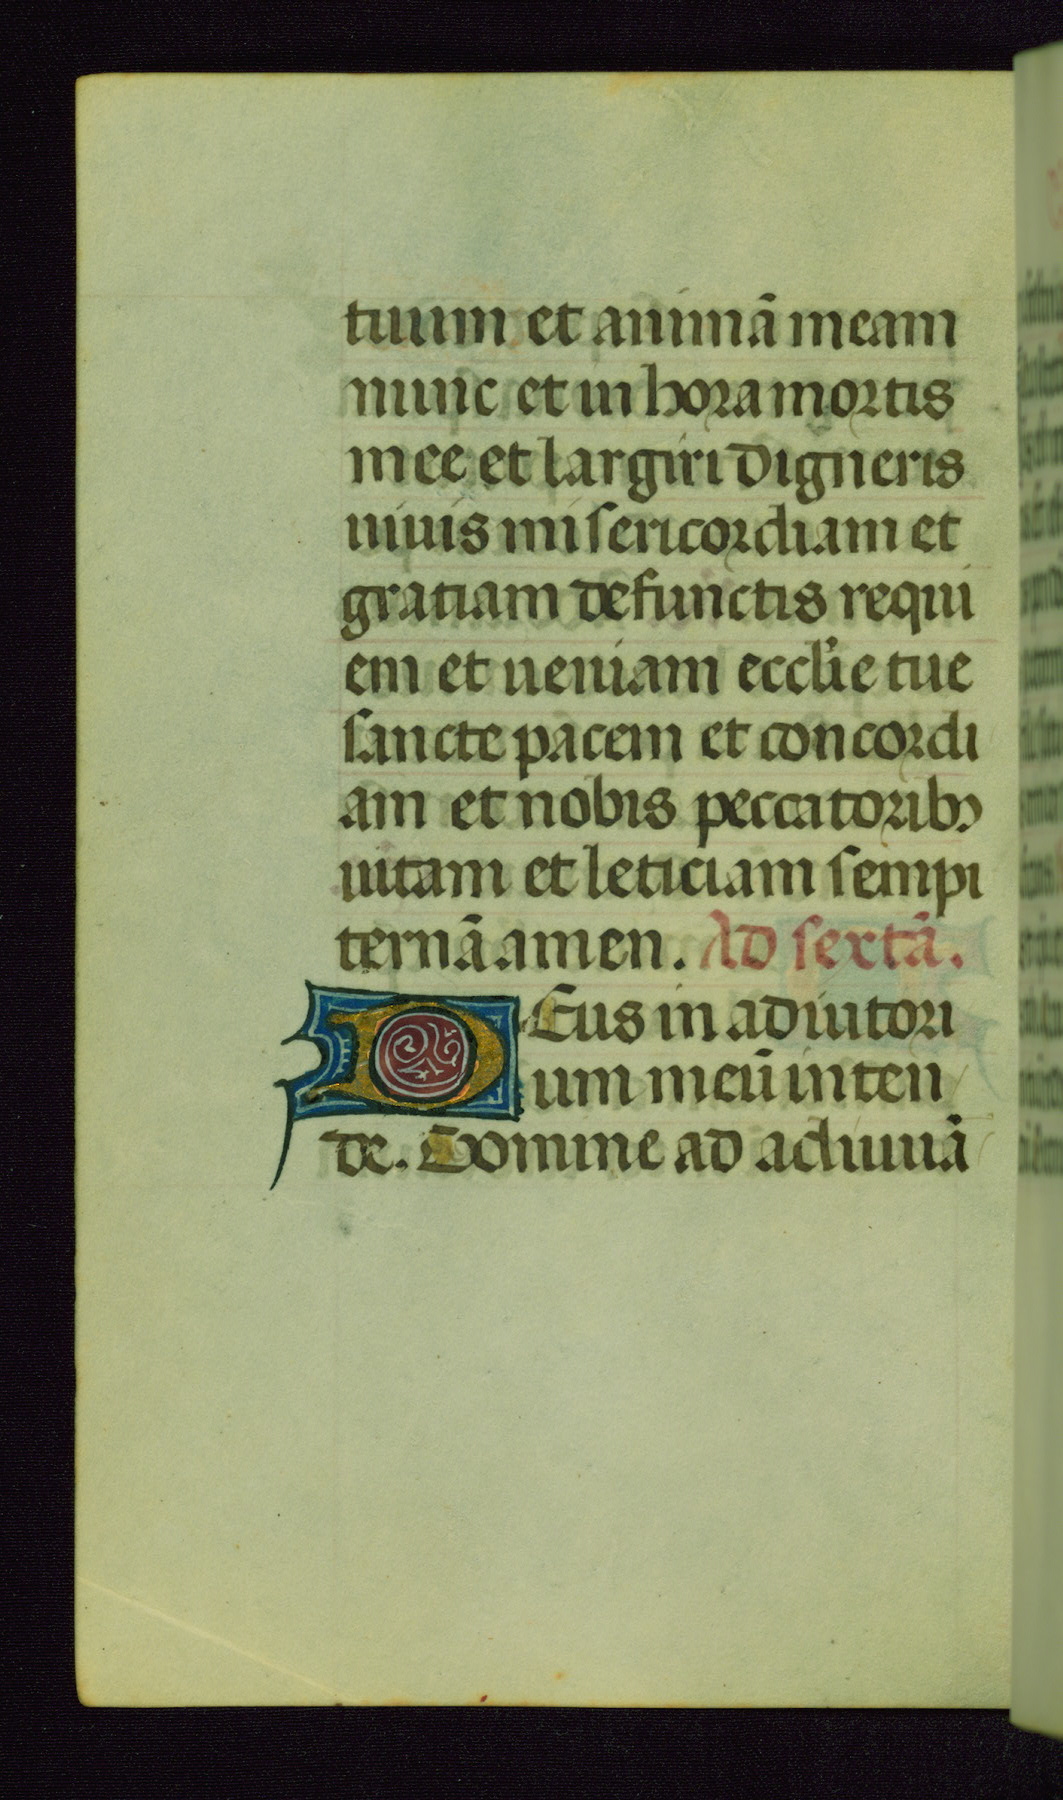 tuum et animã meam
nunc et in hora mortis
mee et largiri digneris
uiuis misericordiam et
gratiam defunctis requi
em et ueniam eccl'ie tue
sancte pacem et concordi
am et nobis peccatoribꝫ
uitam et leticiam sempi
ternã amen. Ad sextã.
DEus in adiutori
um meũ inten
de. Domine ad adiuuã